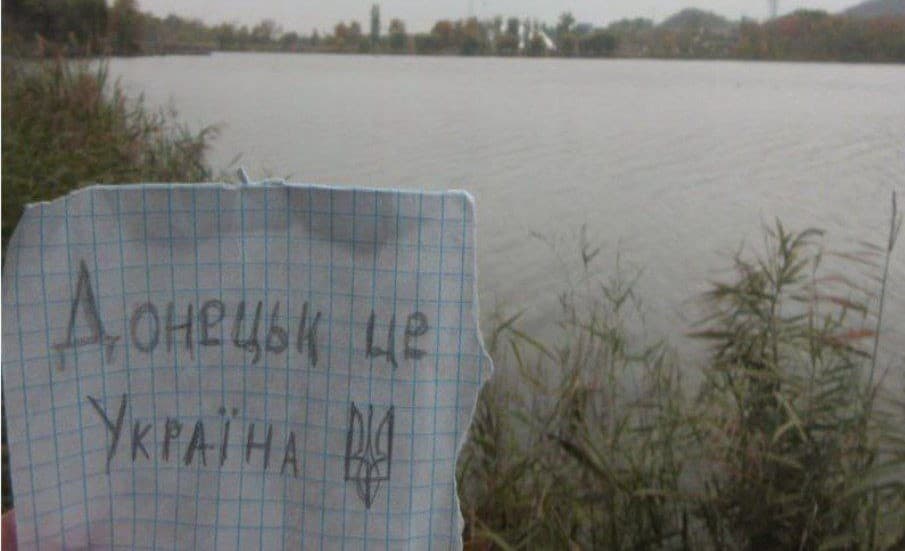 Донецьк це
Україна